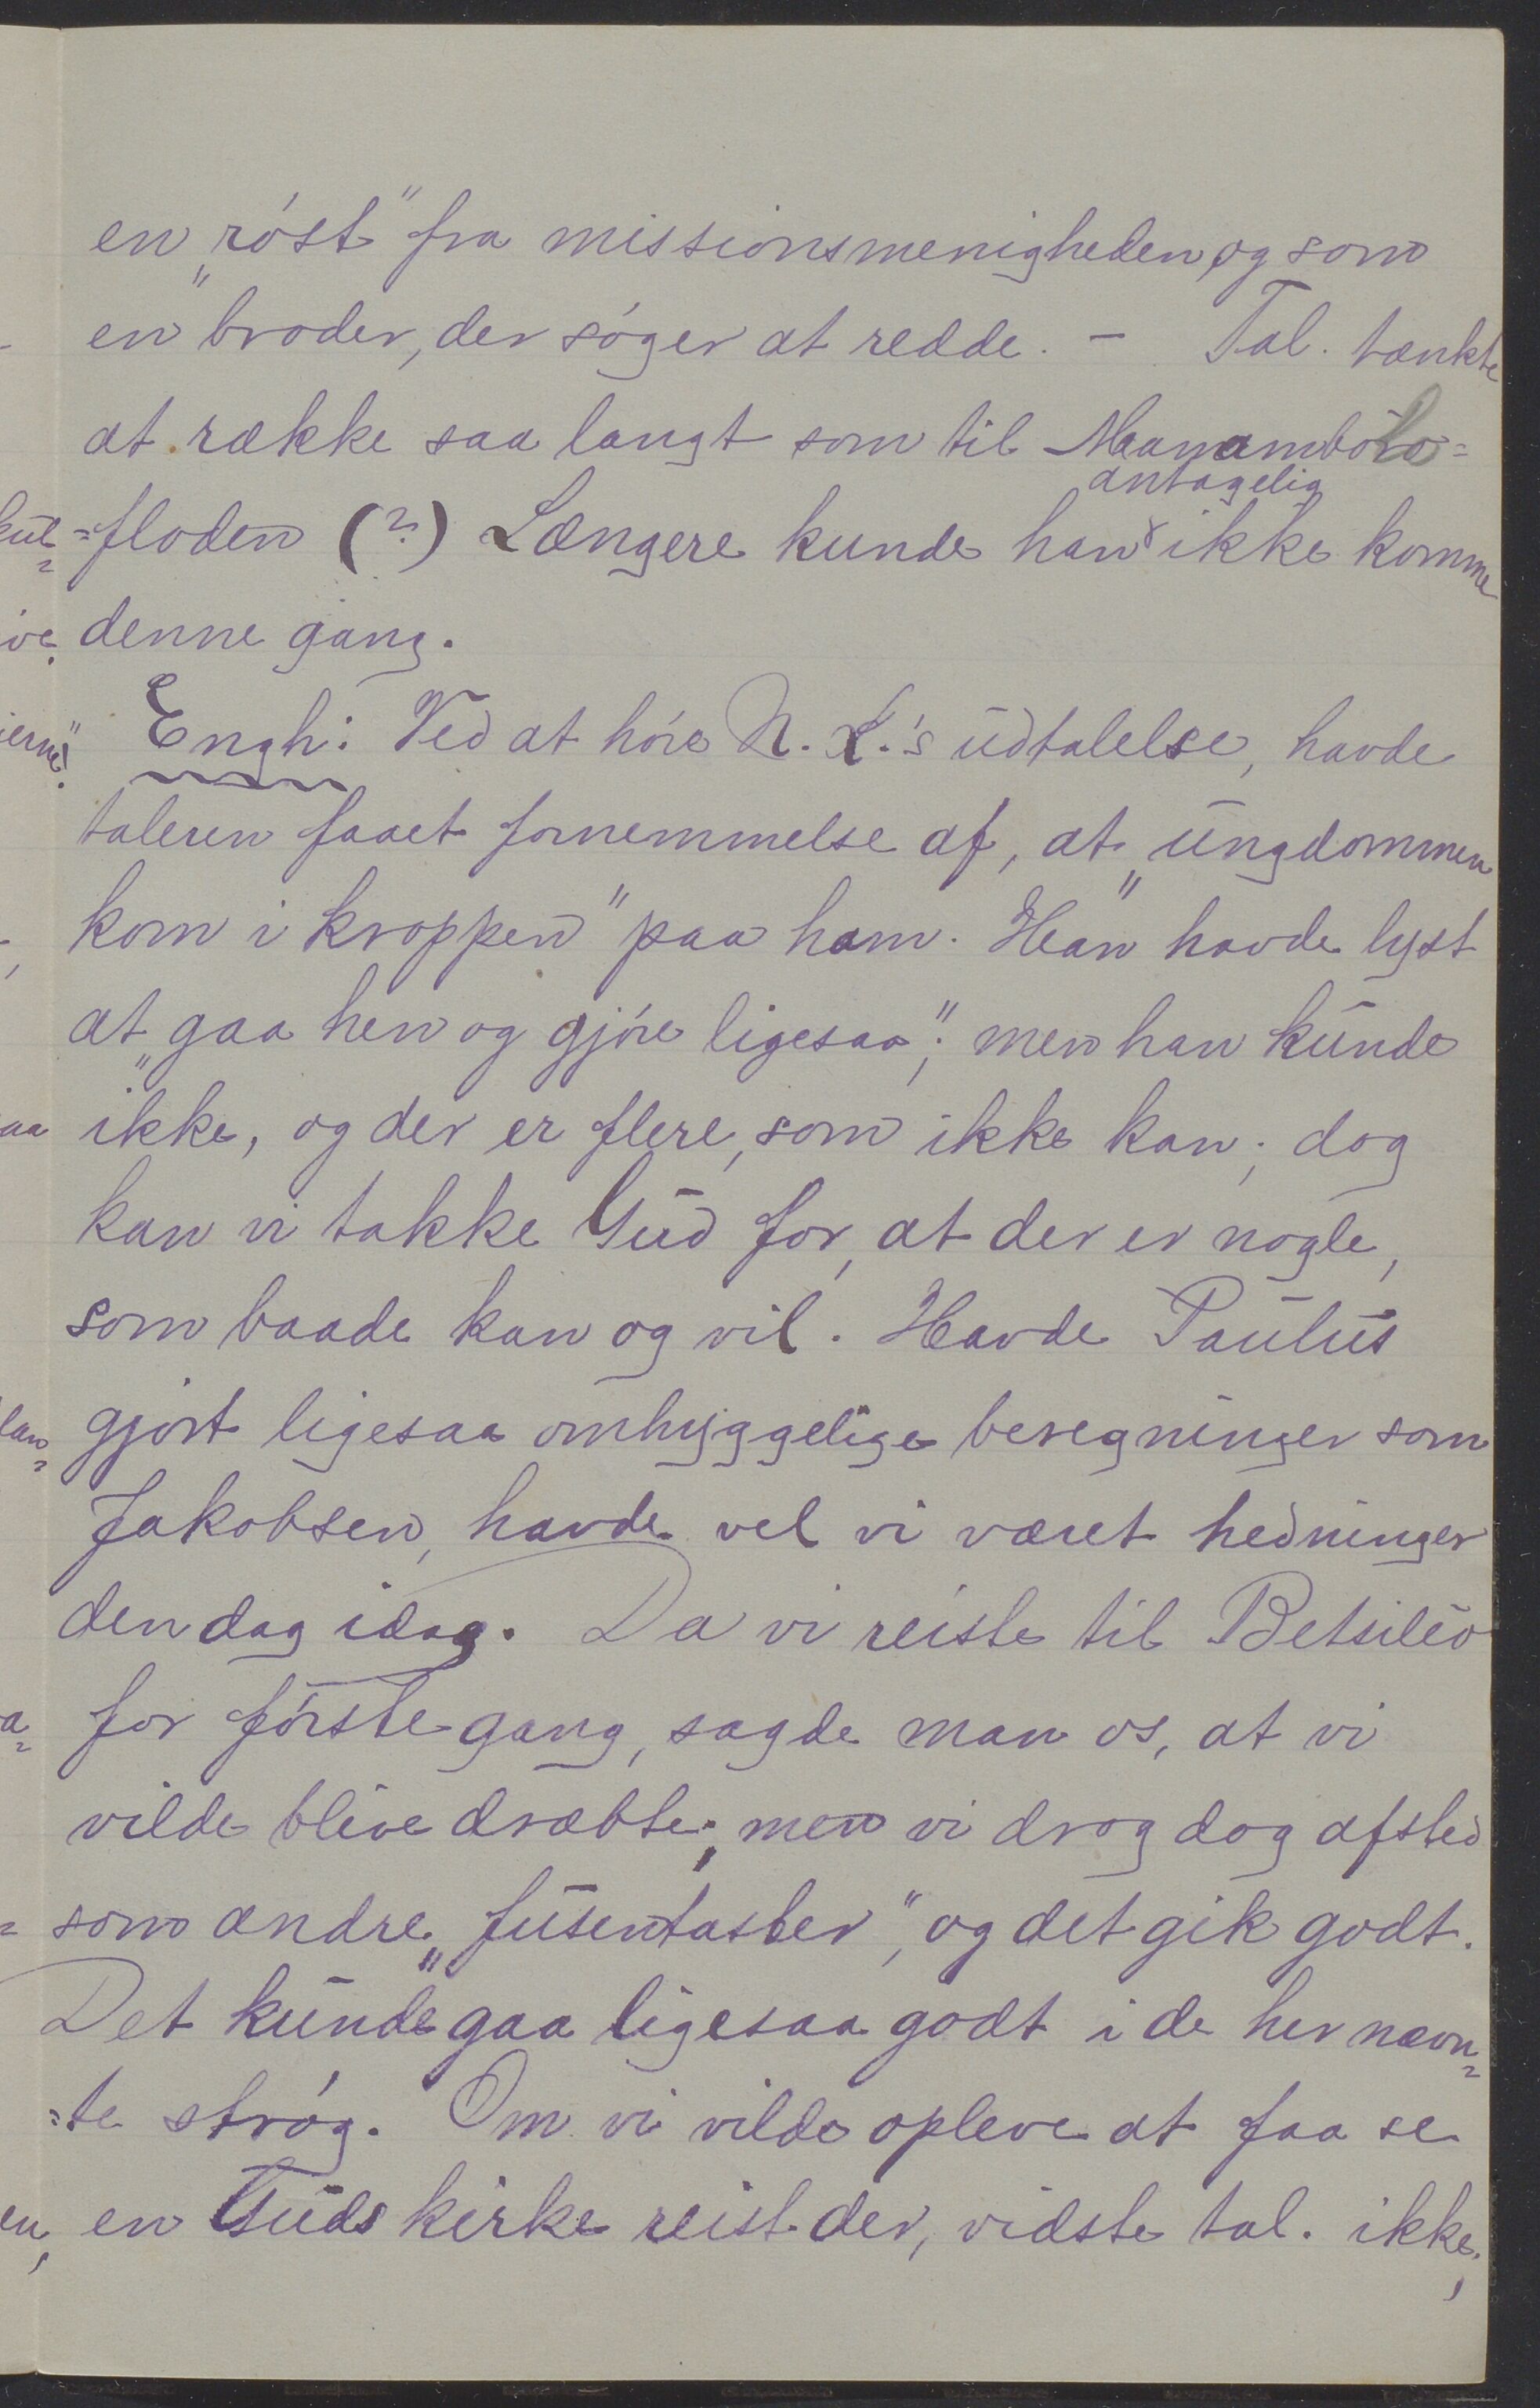 en „røst" fra missionsmenigheden og som
en broder, der søger at redde. - Tal. tænkte
at række saa langt som til Manambolo=
=floden (?) Længere kunde han antagelig ikke komme
denne gang.
Engh: Ved at høre N. L.'s udtalelse, havde
taleren faaet fornemmelse af, at „ungdommen
kom i kroppen" paa ham. Han havde lyst
at „gaa hen og gjøre ligesaa"; men han kunde
ikke, og der er flere, som ikke kan; dog
kan vi takke Gud for, at der er nogle,
som baade kan og vil. Havde Paulus
gjort ligesaa omhyggelige beregninger som
Jakobsen, havde vel vi været hedninger
den dag idag. Da vi reiste til Betsileo
for første gang, sagde man os, at vi
vilde blive dræbte; men vi drog dog afsted
som andre „fusentaster", og det gik godt.
Det kunde gaa ligesaa godt i de her nævn=
=te strøg. Om vi vilde opleve at faa se
en Guds kirke reist der, vidste tal. ikke;